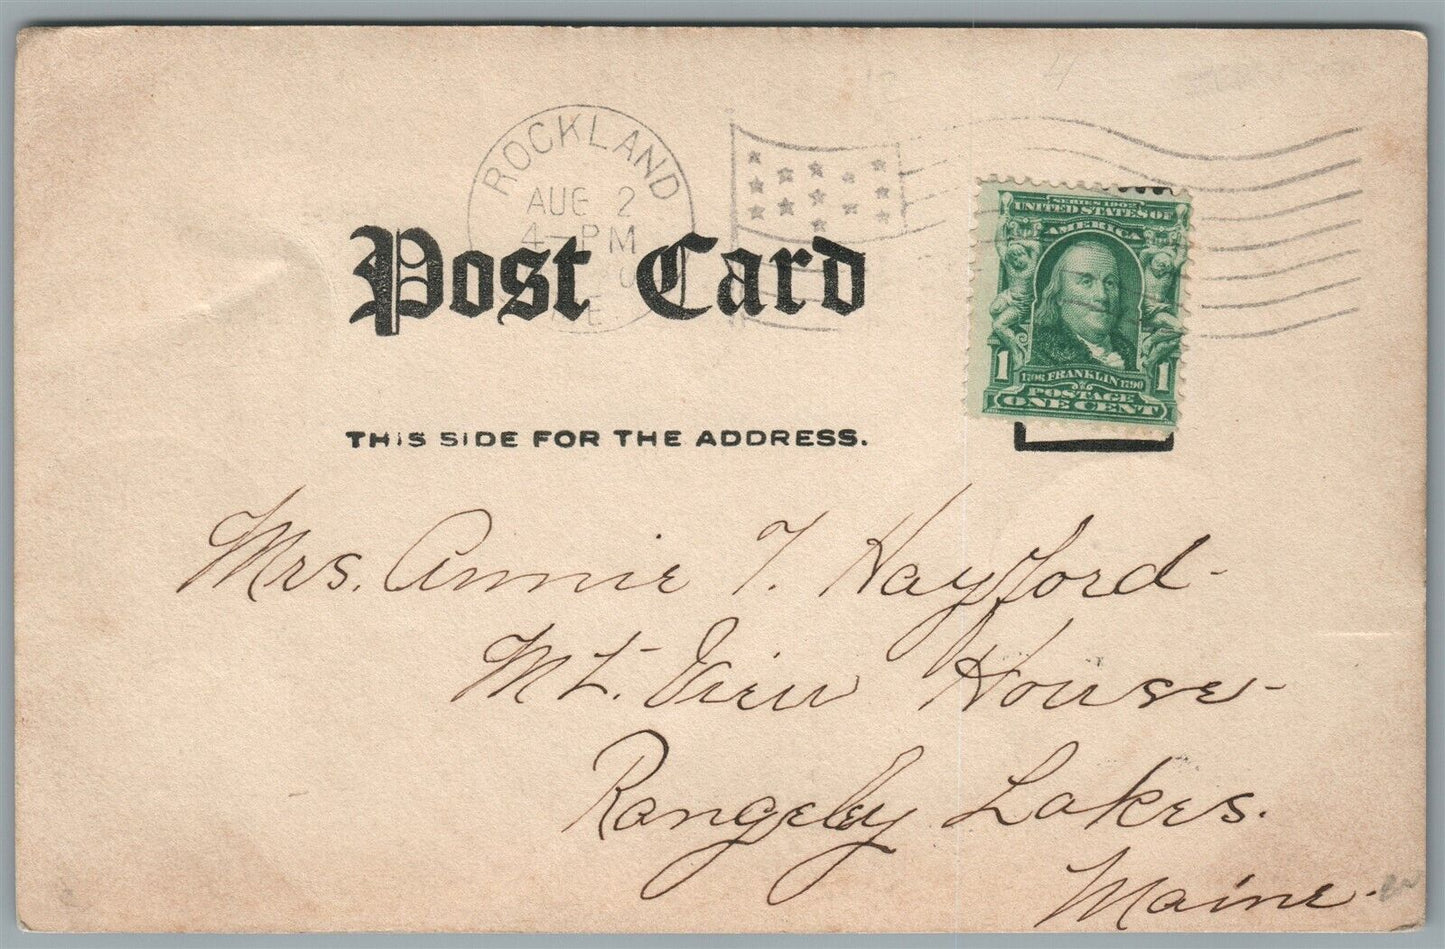 ROCKLAND
AUG 2
4-PM
Post Card
THIS SIDE FOR THE ADDRESS.
SERIES 1902
UNITED STATES OF
AMERICA
1 1706 FRANKLIN 1790 1
POSTAGE
ONE CENT
Mrs. Annie T. Hayford-
Mt. View House-
Rangeley Lakes.
Maine.